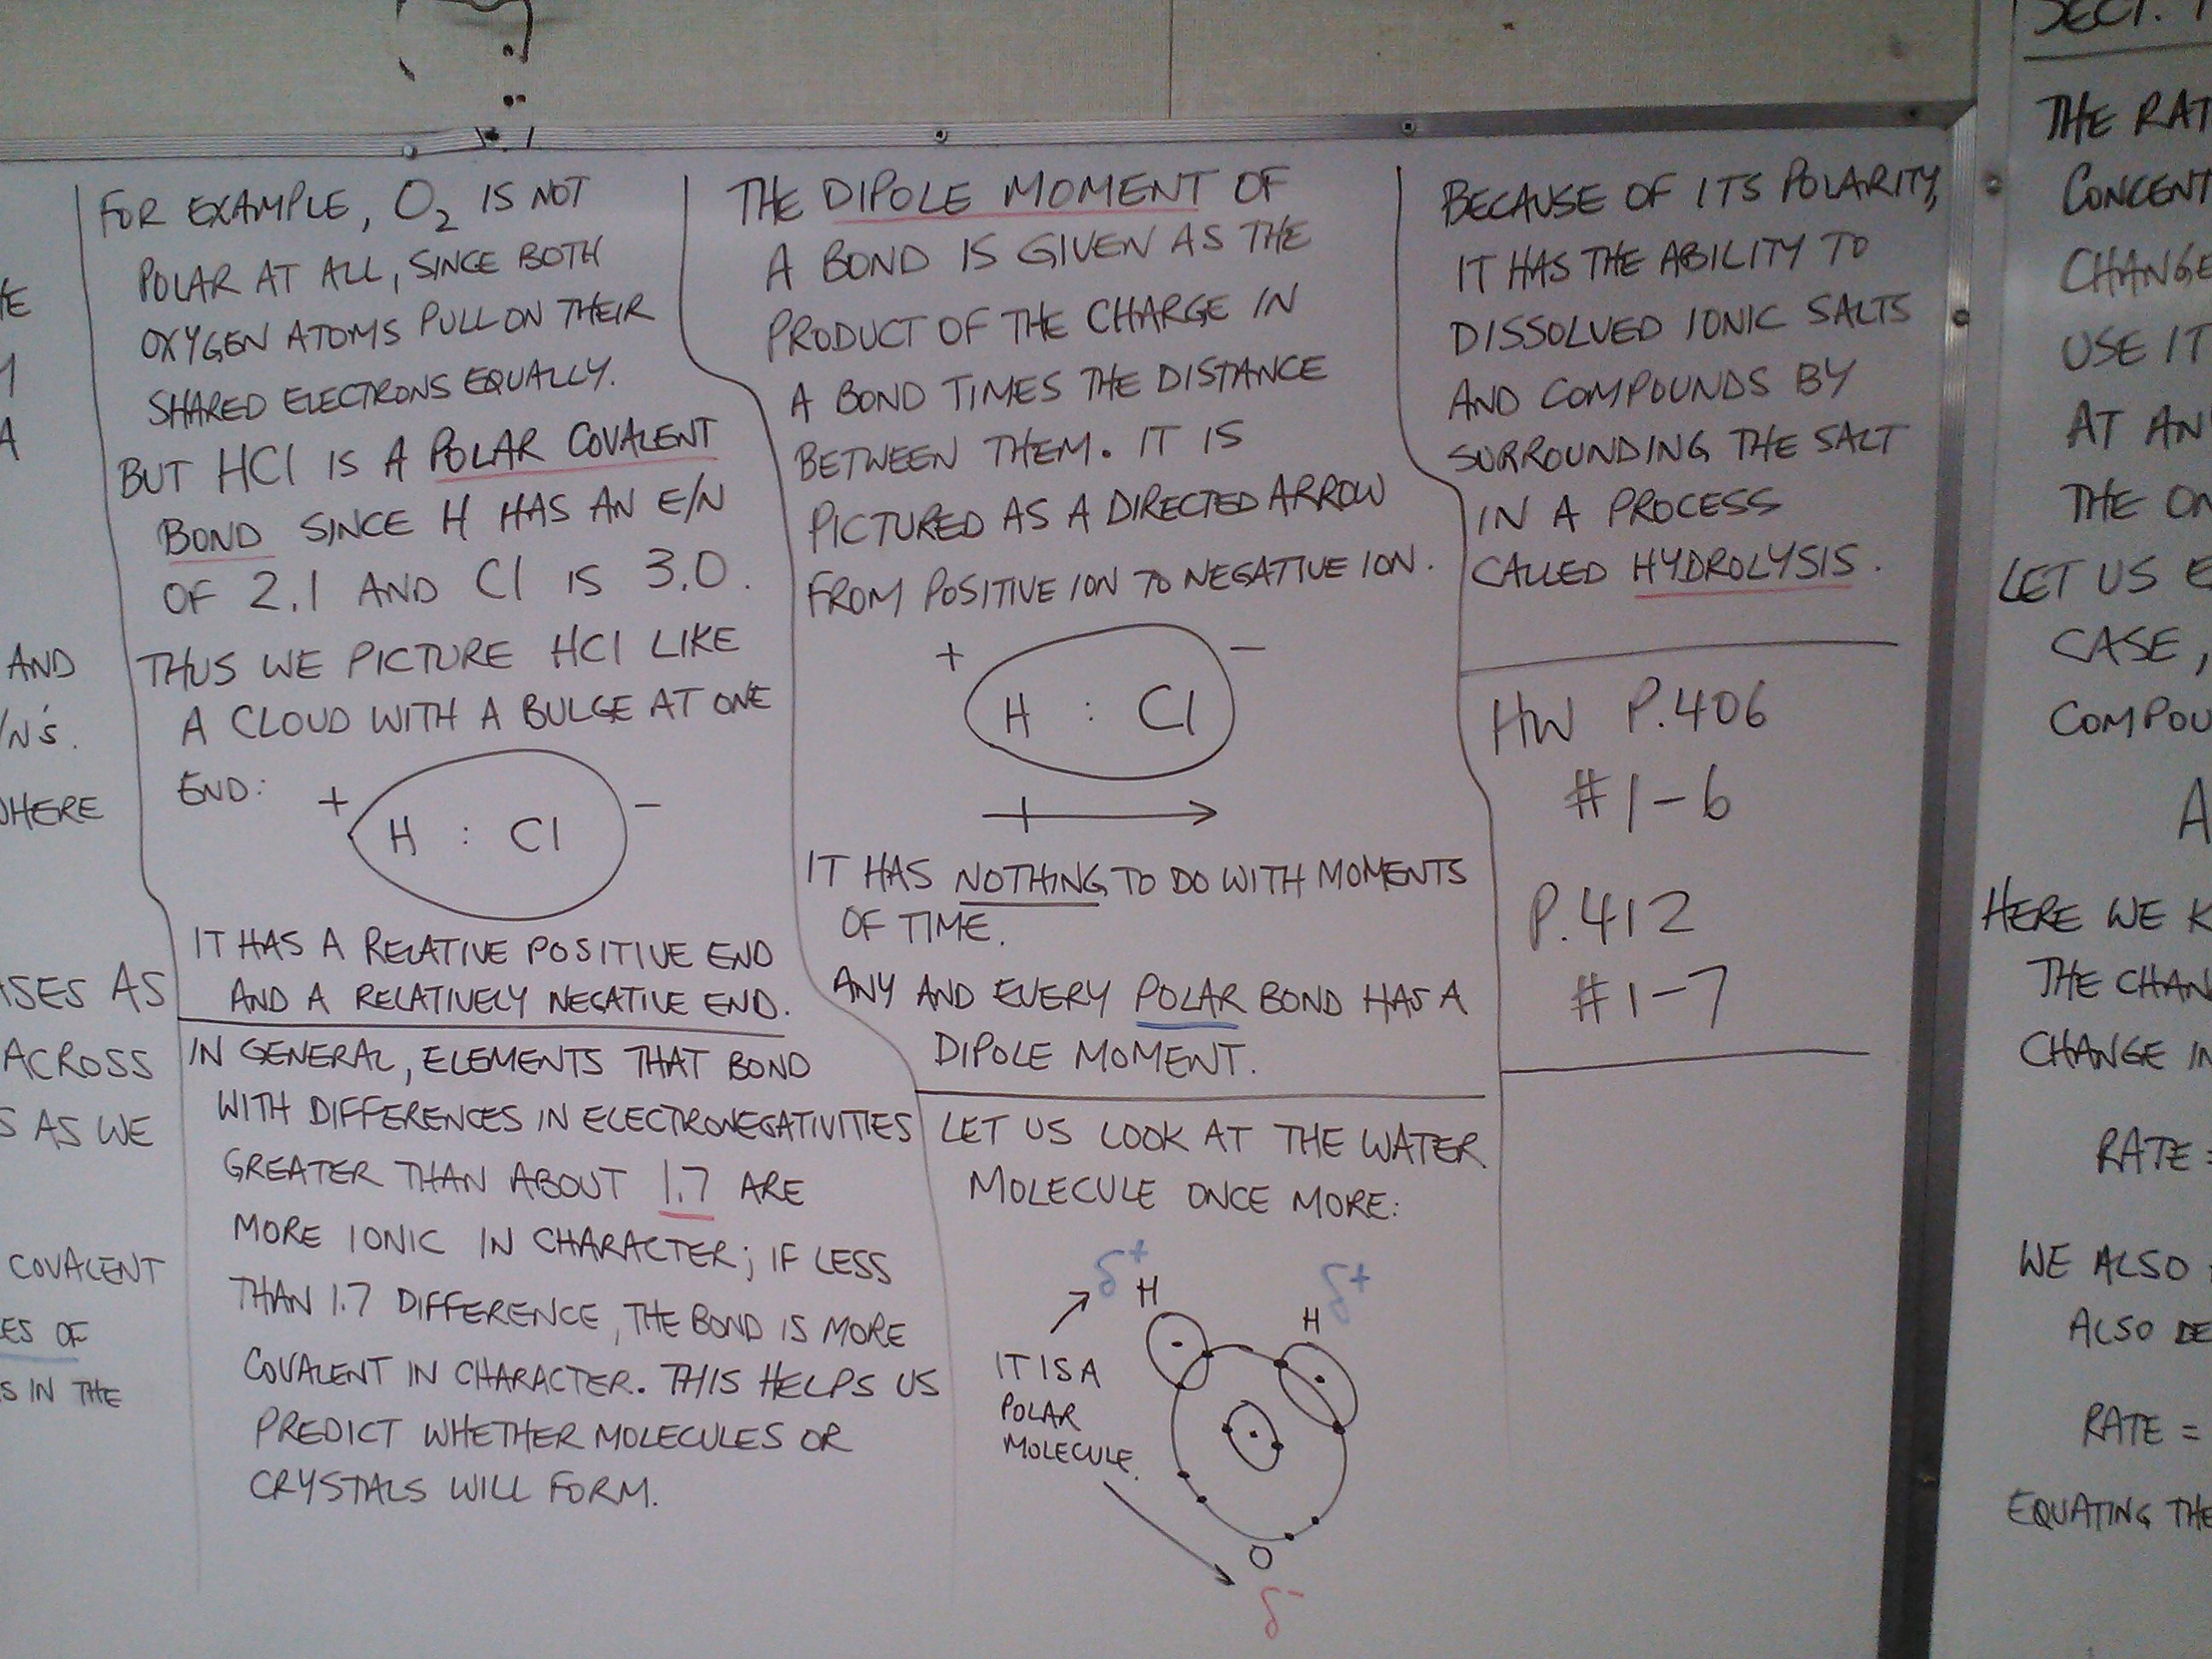 HE
M
A
AND
/N'S.
WHERE
ASES AS
ACROSS
S AS WE
COVALENT
ES OF
S IN THE
FOR EXAMPLE, O2 IS NOT
POLAR AT ALL, SINCE BOTH
OXYGEN ATOMS PULL ON THEIR
SHARED ELECTRONS EQUALLY.
BUT HCl IS A POLAR COVALENT
BOND SINCE H HAS AN E/N
OF 2.1 AND Cl IS 3.0.
THUS WE PICTURE HCl LIKE
A CLOUD WITH A BULGE AT ONE
END:
+ H : Cl −
IT HAS A RELATIVE POSITIVE END
AND A RELATIVELY NEGATIVE END.
IN GENERAL, ELEMENTS THAT BOND
WITH DIFFERENCES IN ELECTRONEGATIVITIES
GREATER THAN ABOUT 1.7 ARE
MORE IONIC IN CHARACTER; IF LESS
THAN 1.7 DIFFERENCE, THE BOND IS MORE
COVALENT IN CHARACTER. THIS HELPS US
PREDICT WHETHER MOLECULES OR
CRYSTALS WILL FORM.
THE DIPOLE MOMENT OF
A BOND IS GIVEN AS THE
PRODUCT OF THE CHARGE IN
A BOND TIMES THE DISTANCE
BETWEEN THEM. IT IS
PICTURED AS A DIRECTED ARROW
FROM POSITIVE ION TO NEGATIVE ION.
+ H : Cl −
IT HAS NOTHING TO DO WITH MOMENTS
OF TIME.
ANY AND EVERY POLAR BOND HAS A
DIPOLE MOMENT.
LET US LOOK AT THE WATER
MOLECULE ONCE MORE:
δ+ δ+
H H
IT IS A
POLAR
MOLECULE.
O
δ−
BECAUSE OF ITS POLARITY,
IT HAS THE ABILITY TO
DISSOLVED IONIC SALTS
AND COMPOUNDS BY
SURROUNDING THE SALT
IN A PROCESS
CALLED HYDROLYSIS.
HW P.406
#1-6
P.412
#1-7
SECT. 1
THE RAT
CONCENT
CHANGE
USE IT
AT AN
THE ON
LET US E
CASE,
COMPOU
A
HERE WE K
THE CHAN
CHANGE IN
RATE =
WE ALSO
ALSO DE
RATE =
EQUATING THE